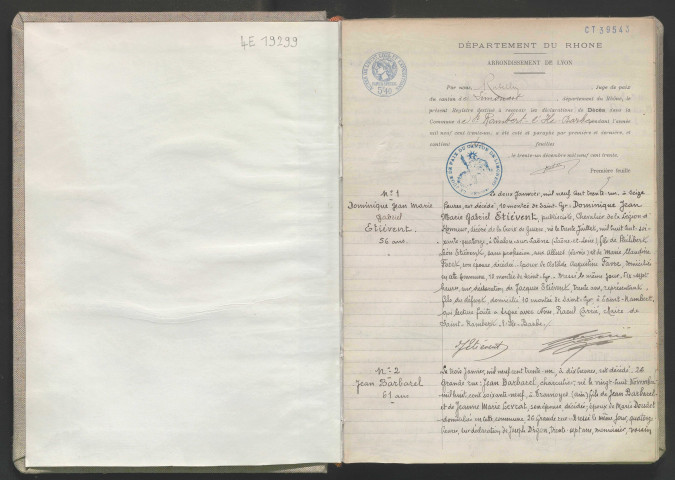 4E 19299
DÉPARTEMENT DU RHONE
ARRONDISSEMENT DE LYON
Par nous, Juge de paix
du canton de Limonest, département du Rhône, le
présent Registre destiné à recevoir les déclarations de Décès dans la
Commune de St Rambert-l'Ile Barbe pendant l'année
mil neuf cent trente-un, a été coté et paraphé par première et dernière, et
contient feuilles
le trente-un décembre mil neuf cent trente.
Première feuille
N° 1
Dominique Jean Marie
Gabriel
Etiévent
56 ans.
Le deux Janvier, mil neuf cent trente-un à seize
heures, est décédé, 10 montée de Saint-Cyr: Dominique Jean
Marie Gabriel Etiévent, publiciste, Chevalier de la Légion d'
Honneur, décoré de la Croix de Guerre, né le trente Juillet, mil huit cent soi-
xante-quatorze, à Chalon-sur-Saône (Saône et Loire), fils de Philibert
Léon Etiévent, sans profession, et de Marie Claudine
son épouse décédée - époux de Clotilde Augustine Favre, domicilié
en cette commune, 10 montée de Saint-Cyr. - Dressé le même jour, dix-sept
heures, sur déclaration de Jacques Etiévent, trente ans, représentant,
fils du défunt, domicilié 10 montée de Saint-Cyr, à Saint-Rambert,
qui lecture faite a signé avec Nous, Raoul Carrié, Maire de
Saint-Rambert-l'Ile-Barbe.
JEtiévent
N° 2
Jean Barbarel
61 ans
Le trois Janvier, mil neuf cent trente-un, à dix heures, est décédé, 26
Grande rue: Jean Barbarel, charcutier, né le vingt-huit Novembre
mil huit cent soixante-neuf, à Tramoyes (Ain), fils de Jean Barbarel
et de Jeanne Marie Levrat, son épouse décédés; époux de Marie Doudet
domicilié en cette commune 26 Grande rue - Dressé le même jour, quatorze
heures, sur déclaration de Joseph trente-sept ans, menuisier, voisin